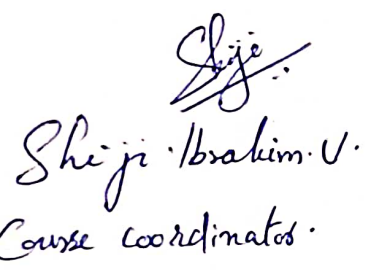 Shiji
Shiji.Ibrahim.V.
Course coordinator.